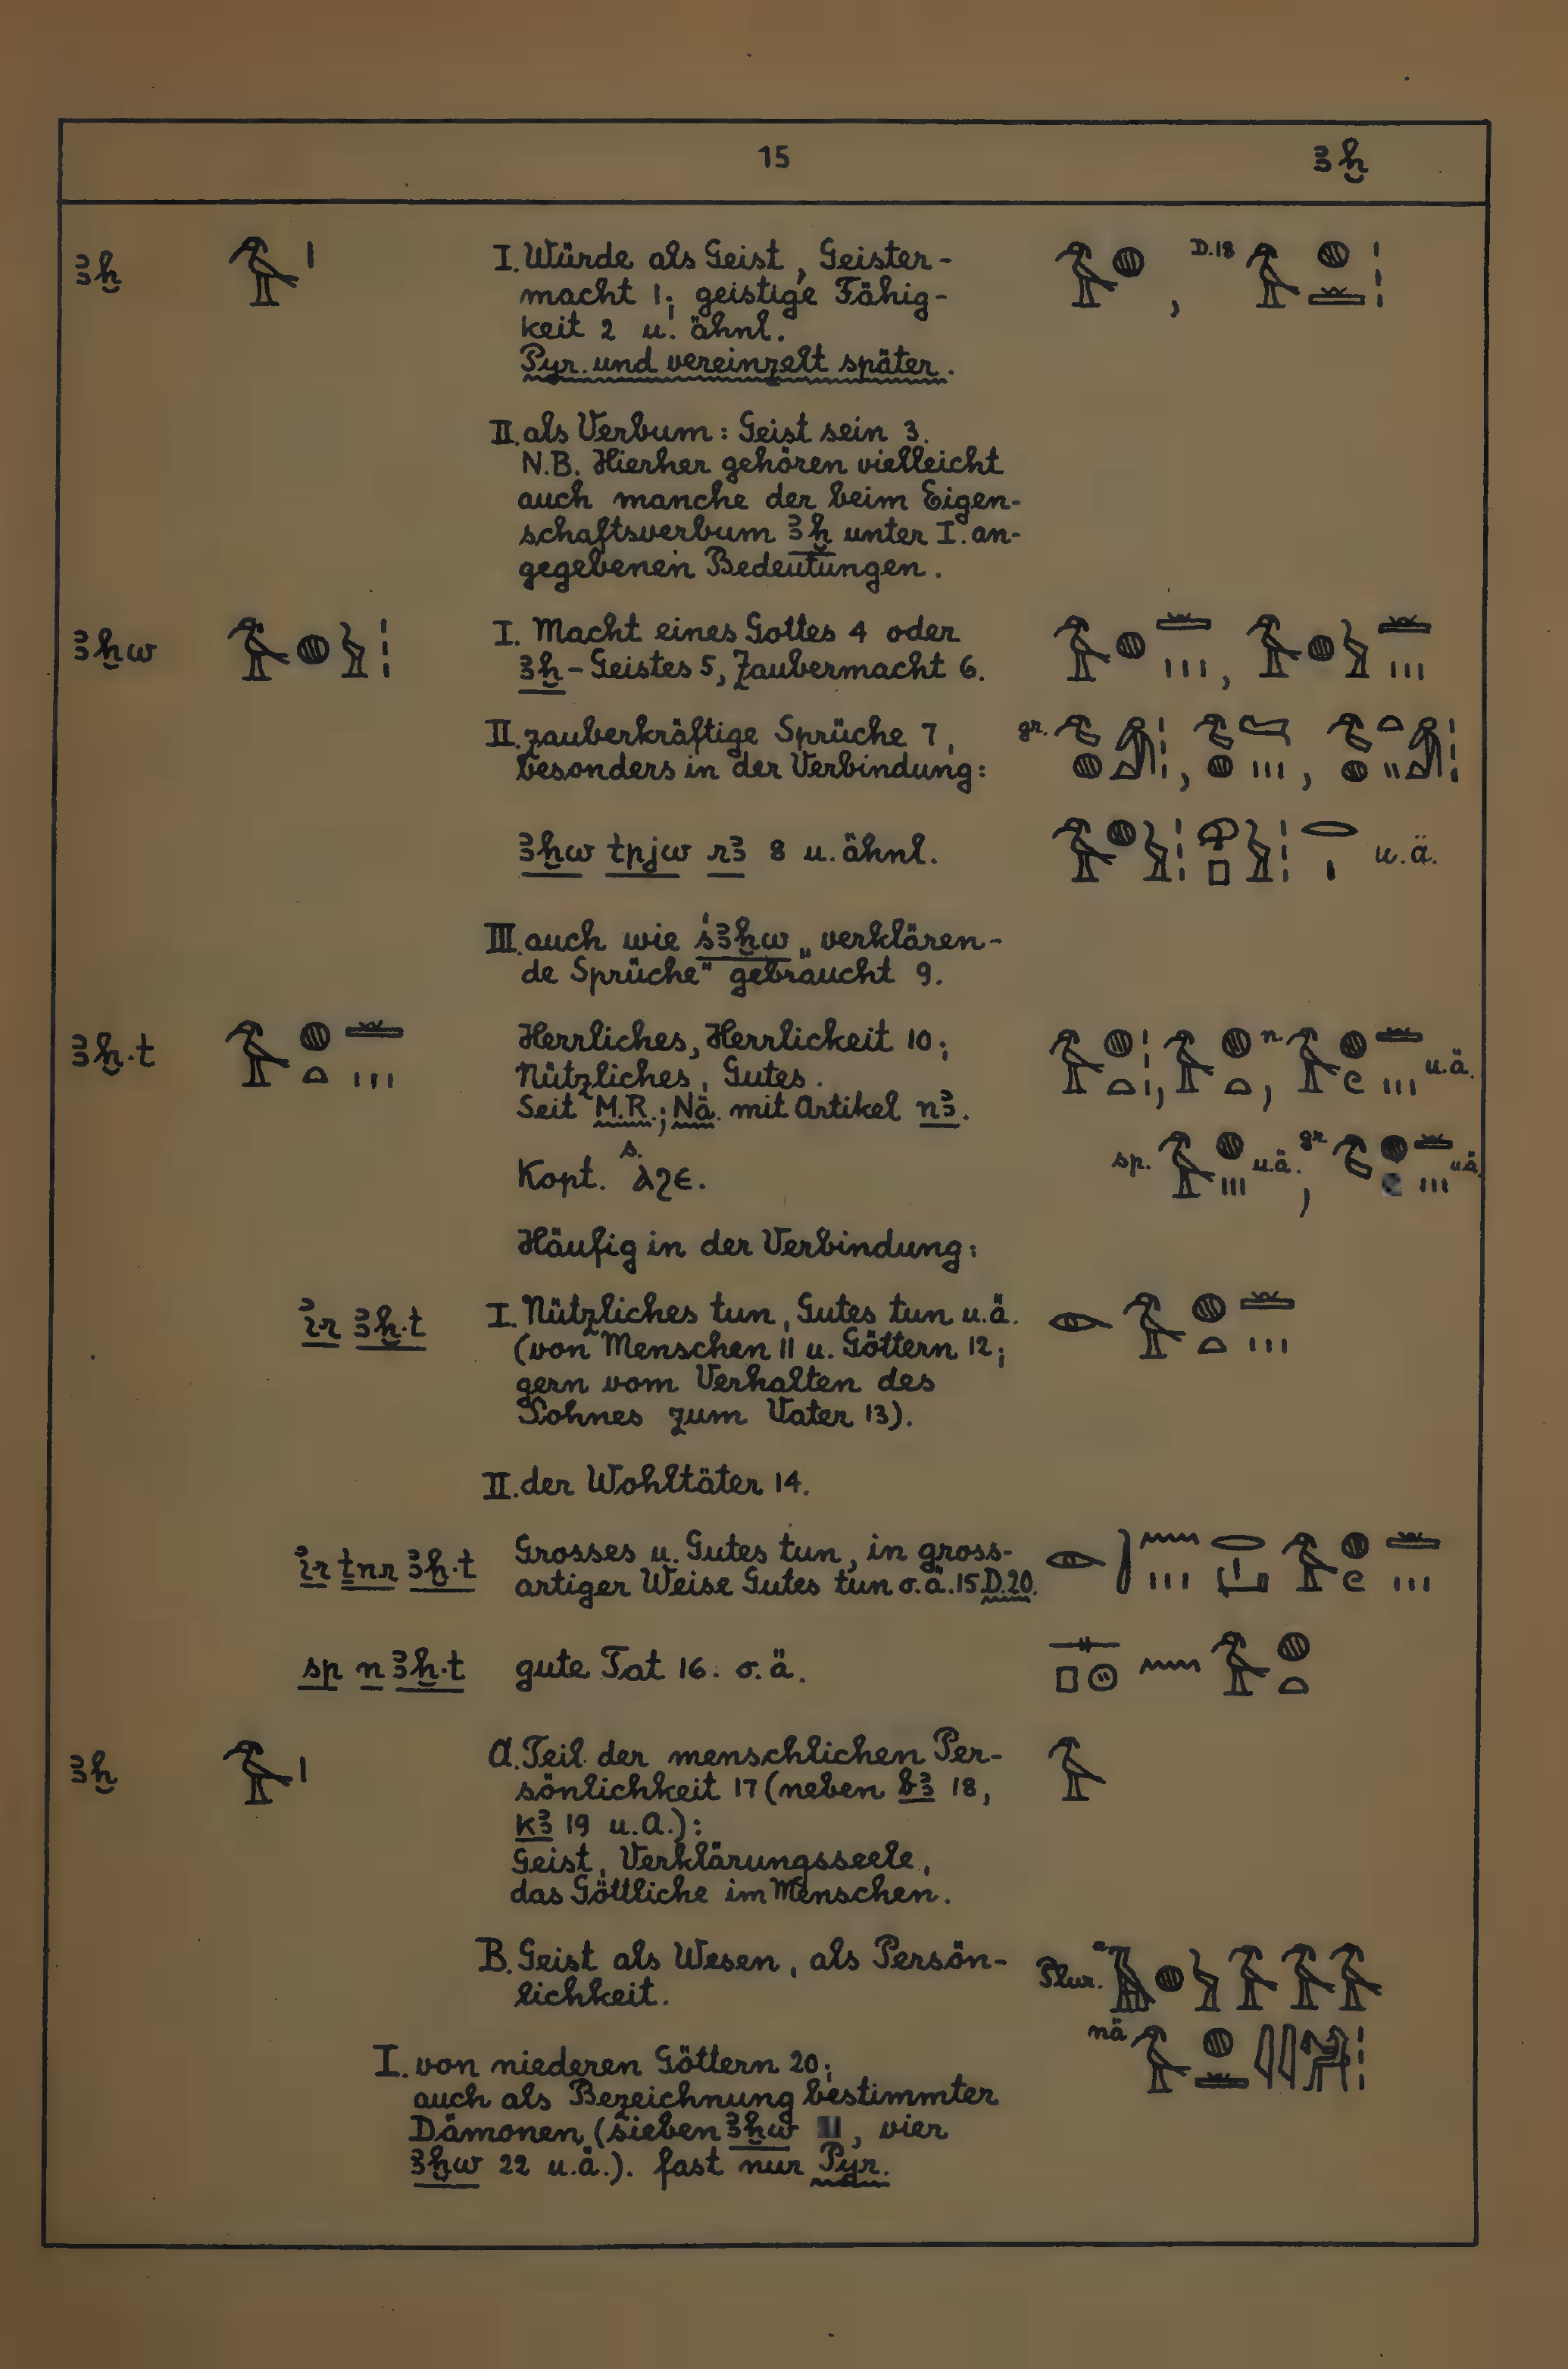 15 ꜣḫ
ꜣḫ I. Würde als Geist, Geister-
macht 1; geistige Fähig-
keit 2 u. ähnl.
Pyr. und vereinzelt später.
D.18
II. als Verbum: Geist sein 3.
N.B. Hierher gehören vielleicht
auch manche der beim Eigen-
schaftsverbum ꜣḫ unter I. an-
gegebenen Bedeutungen.
ꜣḫw I. Macht eines Gottes 4 oder
ꜣḫ-Geistes 5, Zaubermacht 6.
II. zauberkräftige Sprüche 7, gr.
besonders in der Verbindung:
ꜣḫw tpjw rꜣ 8 u. ähnl. u.ä.
III. auch wie śꜣḫw „verklären-
de Sprüche" gebraucht 9.
ꜣḫ.t Herrliches, Herrlickeit 10; n. u.ä.
Nützliches, Gutes.
Seit M.R.; Nä. mit Artikel nꜣ.
sp. u.ä. gr. u.ä.
Kopt. s. ⲁϩⲉ.
Häufig in der Verbindung:
ir ꜣḫ.t I. Nützliches tun, Gutes tun u.ä.
(von Menschen 11 u. Göttern 12;
gern vom Verhalten des
Sohnes zum Vater 13).
II. der Wohltäter 14.
ir ṯnr ꜣḫ.t Grosses u. Gutes tun, in gross-
artiger Weise Gutes tun o.ä. 15 D.20.
sp n ꜣḫ.t gute Tat 16. o.ä.
ꜣḫ A. Teil der menschlichen Per-
sönlichkeit 17 (neben bꜣ 18,
kꜣ 19 u.A.):
Geist, Verklärungsseele,
das Göttliche im Menschen.
B. Geist als Wesen, als Persön- Plur. a.
lichkeit.
nä
I. von niederen Göttern 20;
auch als Bezeichnung bestimmter
Dämonen (sieben ꜣḫw , vier
ꜣḫw 22 u.ä.). fast nur Pyr.